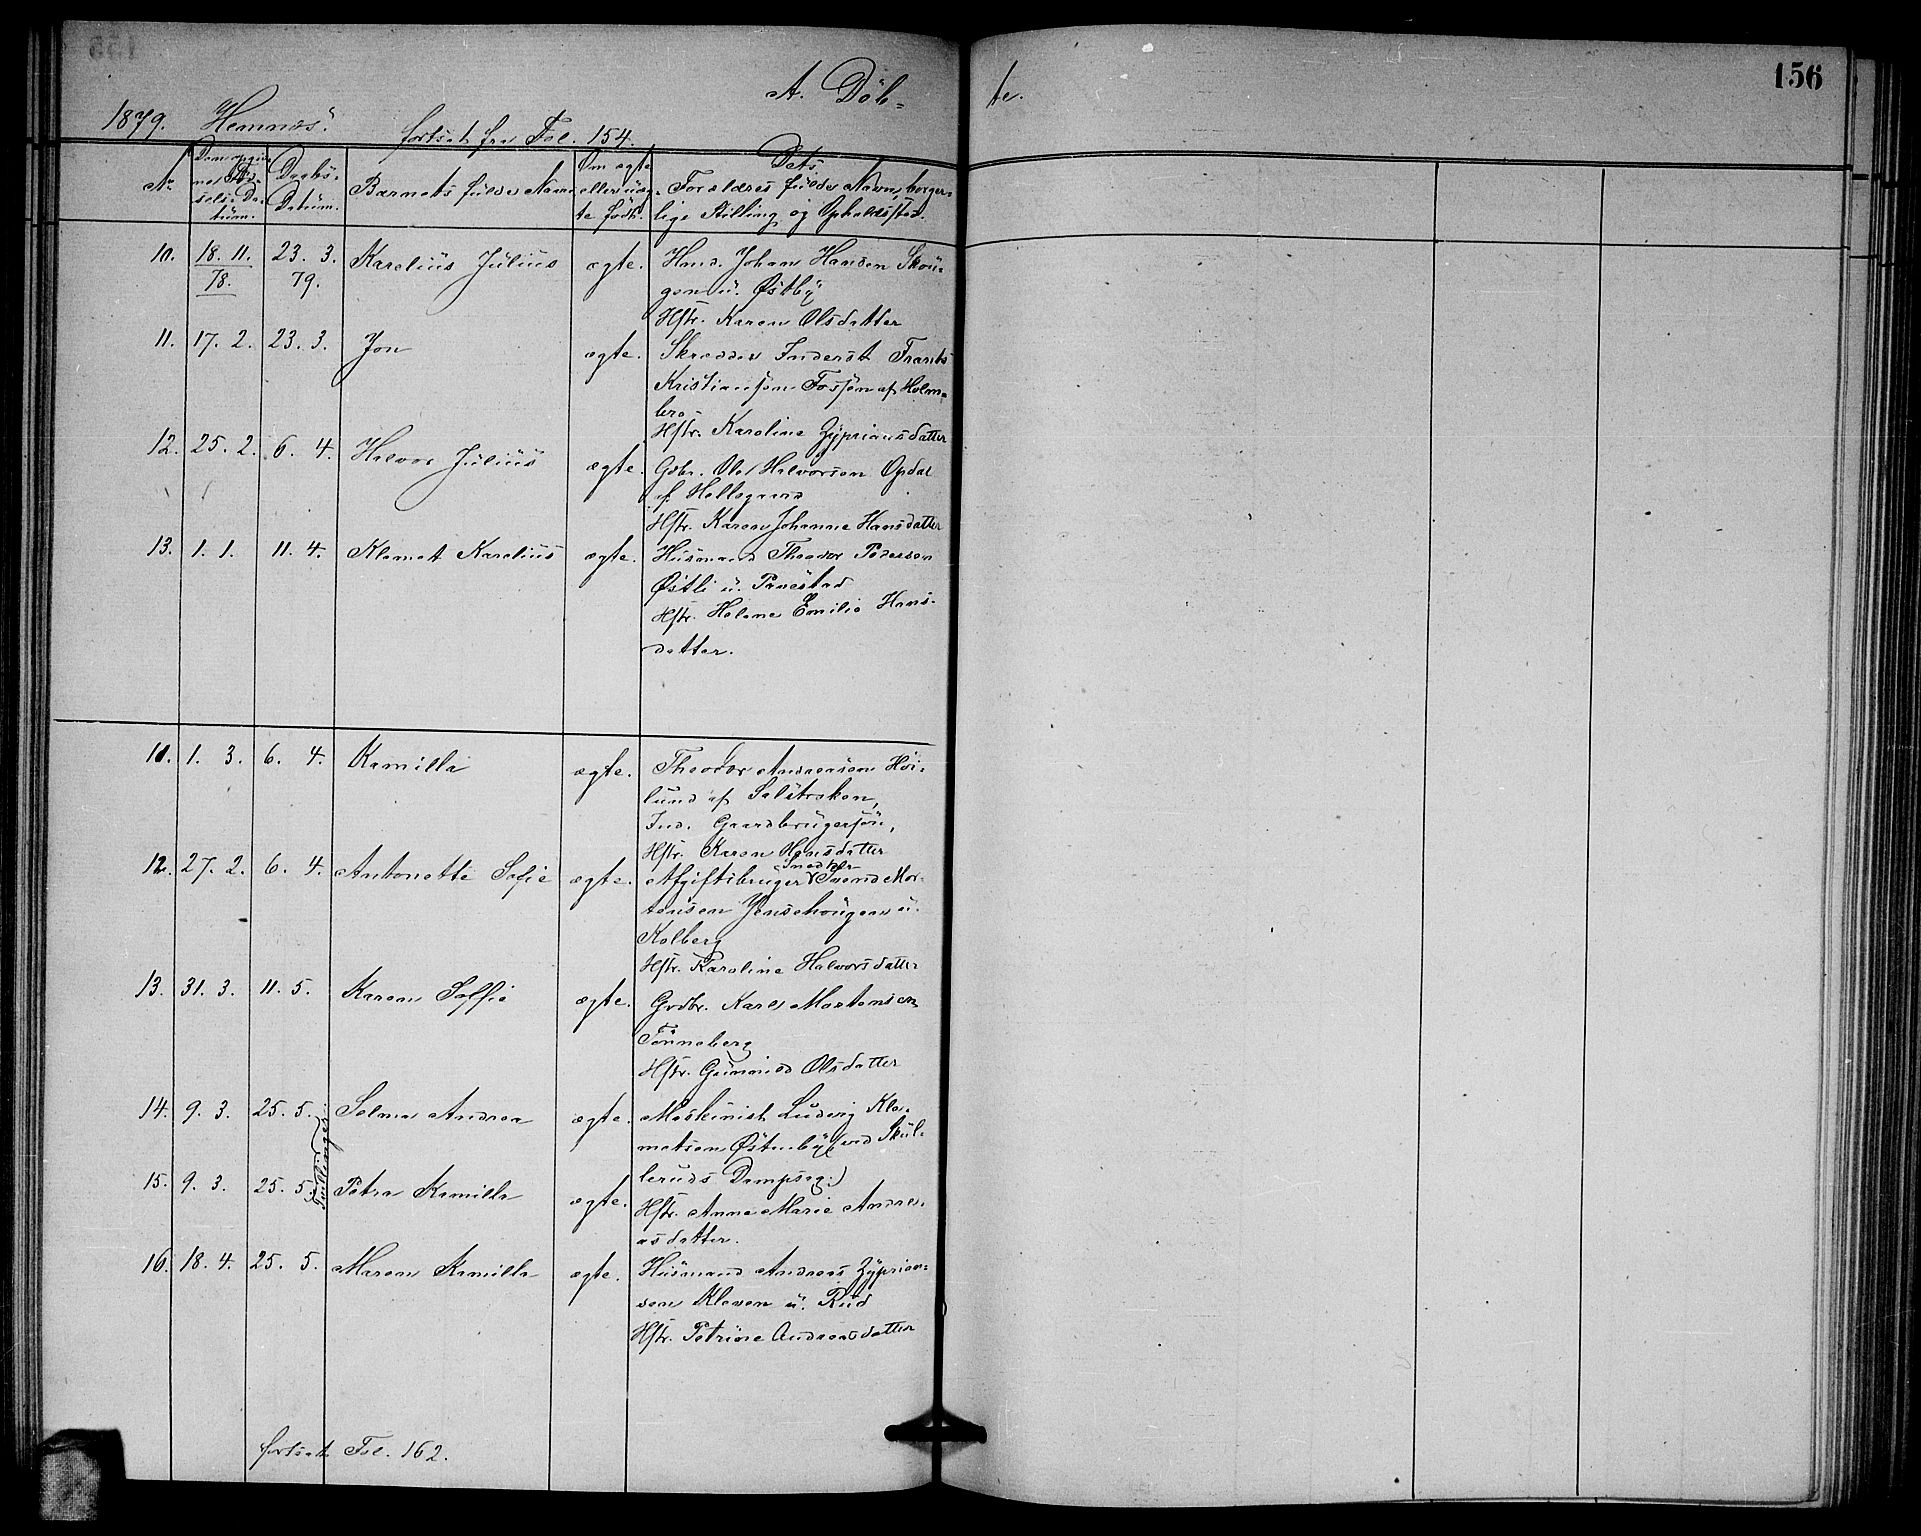 156
A. Döb- te.
1879. Hemnæs.
fortsat fra Fol. 154.
No
Den opgiv-
ne Föd-
sels-Da-
tum.
Daabs-
Datum.
Barnets fulde Navn
Om ægte
eller uæg-
te født.
Dets
Forældres fulde Navn, borger-
lige Stilling og Opholdssted.
10. 18. 11. 78. 23. 3. 79. Karelius Julius ægte. Hmd. Johan Hansen Skou-
gen u. Østby
Hstr. Karen Olsdatter
11. 17. 2. 23. 3. Jon ægte. Skrædder Inderst Frants
Kristiansen Fossen af Holm-
bro
Hstr. Karoline Zyprians datter
12. 25. 2. 6. 4. Halvor Julius ægte. Gdbr. Ole Halvorsen Opdal
af Hellegaard
Hstr. Karen Johanne Hansdatter
13. 1. 1. 11. 4. Klemet Karelius ægte. Husmand Theodor Pedersen
Østli u. Panestad
Hstr. Helene Emilie Hans-
datter.
11. 1. 3. 6. 4. Kamilla ægte. Theodor Andreasen Høi-
lund af
Ind. Gaardbrugersøn,
Hstr. Karen Hansdatter
12. 27. 2. 6. 4. Antonette Sofie ægte. Afgiftsbruger & Snedker Svend Mor-
tensen Jensehougen u.
Kolberg
Hstr. Karoline Halvorsdatter
13. 31. 3. 11. 5. Karen Soffie ægte. Grdbr. Karl Martensen
Tønneberg
Hstr. Gunnild Olsdatter
14. 9. 3. 25. 5. Selma Andrea ægte. Maskinist Ludvig Kle-
metsen Østenby (ved Skul-
leruds Dampsag.)
Tvillinger.
15. 9. 3. 25. 5. Petra Kamilla ægte. Hstr. Anne Marie Andre-
asdatter.
16. 18. 4. 25. 5. Maren Kamilla ægte. Husmand Andreas Zyprian-
sen Kleven u. Rud
Hstr. Petrine Andreasdatter
fortsat Fol. 162.